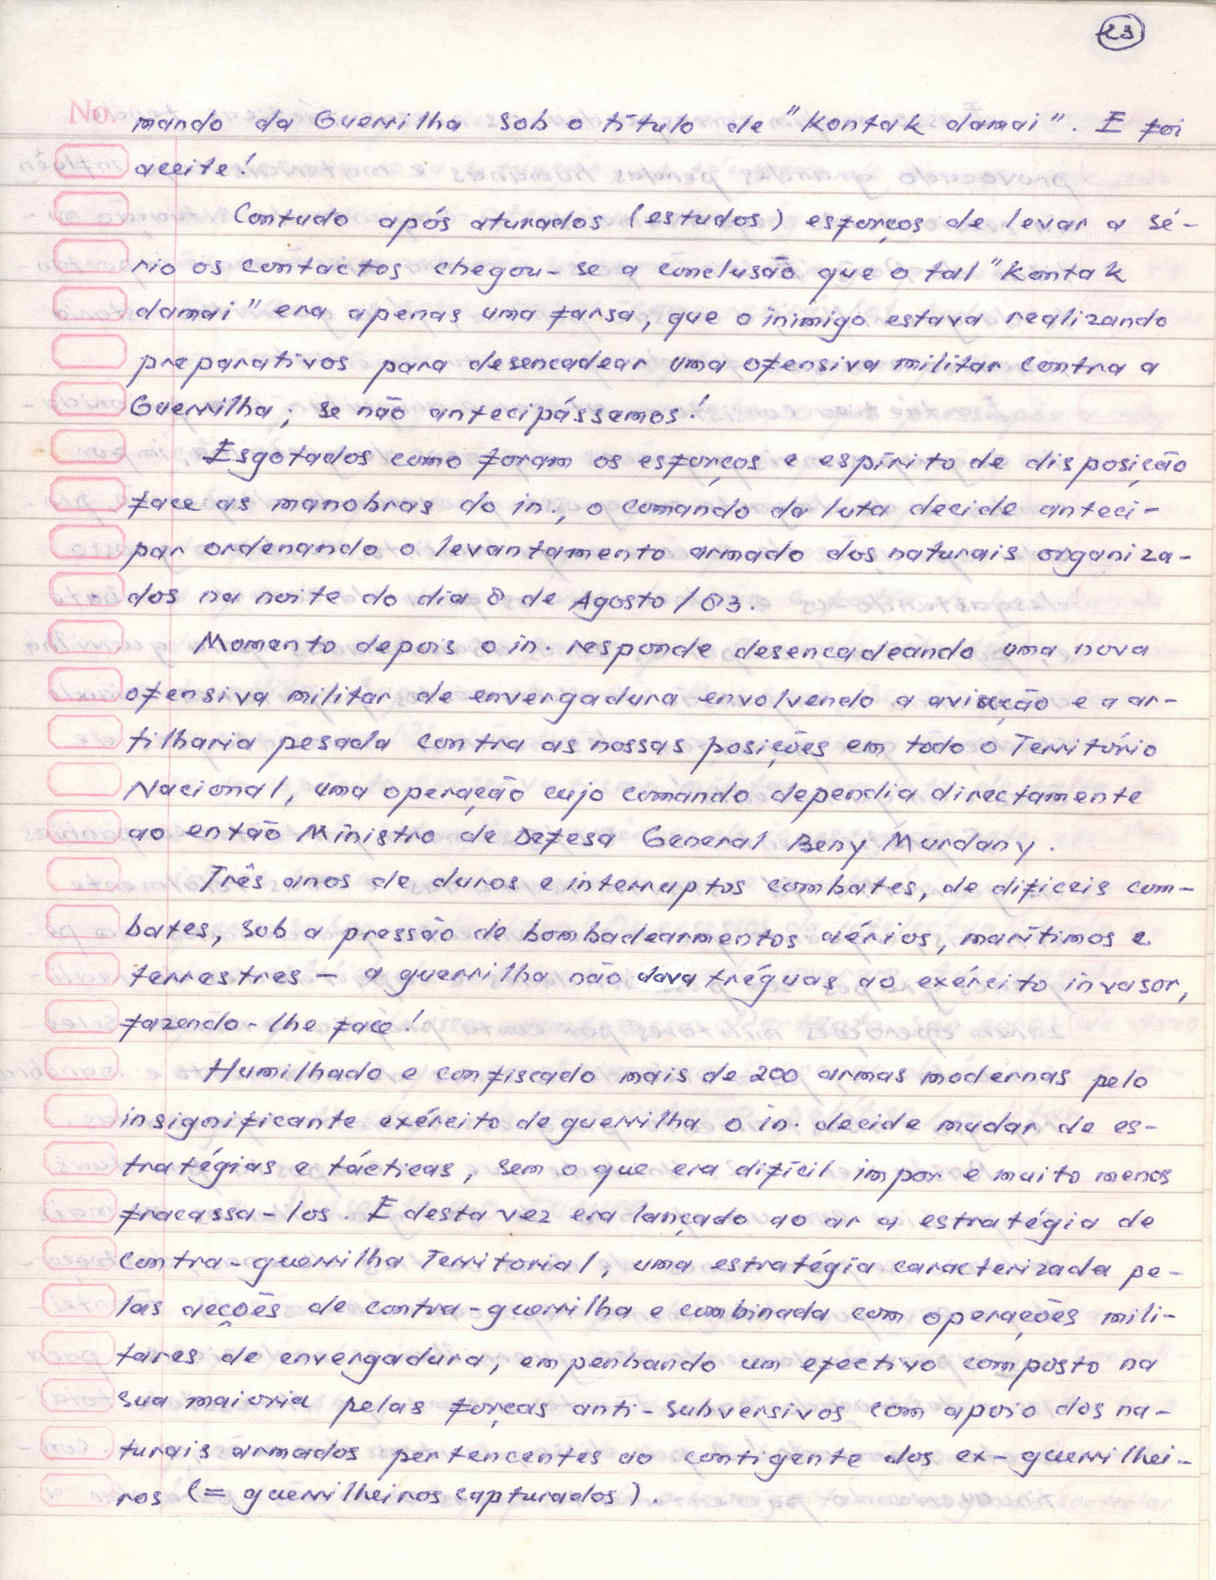 23
No.
mando da Guerrilha sob o título de "Kontak damai". E foi
aceite!
Contudo após aturados (estudos) esforços de levar a sé-
rio os contactos chegou-se a conclusão que o tal "Kontak
damai" era apenas uma farsa, que o inimigo estava realizando
preparativos para desencadear uma ofensiva militar contra a
Guerrilha; se não antecipássemos!
Esgotados como foram os esforços e espírito de disposição
face as manobras do in., o comando da luta decide anteci-
par ordenando o levantamento armado dos naturais organiza-
dos na noite do dia 8 de Agosto/83.
Momento depois o in. responde desencadeando uma nova
ofensiva militar de envergadura envolvendo a aviação e a ar-
tilharia pesada contra as nossas posições em todo o Território
Nacional, uma operação cujo comando dependia directamente
ao então Ministro de Defesa General Beny Murdany.
Três anos de duros e interruptos combates, de difíceis com-
bates, sob a pressão de bombadearmentos aérios, marítimos e
terrestres - a guerrilha não dava tréguas ao exército invasor,
fazendo-lhe face!
Humilhado e confiscado mais de 200 armas modernas pelo
insignificante exército de guerrilha o in. decide mudar de es-
tratégias e tácticas, sem o que era difícil impor e muito menos
fracassa-los. E desta vez era lançado ao ar a estratégia de
Contra-guerrilha Territorial, uma estratégia caracterizada pe-
las acções de contra-guerrilha e combinada com operações mili-
tares de envergadura, empenhando um efectivo composto na
sua maioria pelas forças anti-subversivos com apoio dos na-
turais armados pertencentes ao contigente dos ex-guerrilhei-
ros (= guerrilheiros capturados).